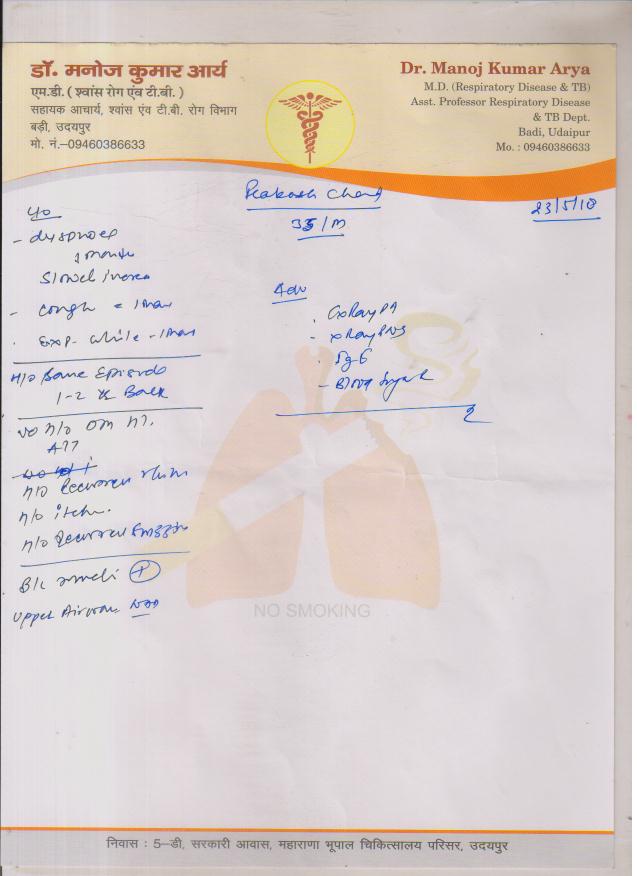 डॉ. मनोज कुमार आर्य
एम.डी. ( श्वांस रोग एंव टी.बी. )
सहायक आचार्य, श्वांस एंव टी.बी. रोग विभाग
बड़ी, उदयपुर
मो. नं.–09460386633
Dr. Manoj Kumar Arya
M.D. (Respiratory Disease & TB)
Asst. Professor Respiratory Disease
& TB Dept.
Badi, Udaipur
Mo. : 09460386633
Prakash Chand
35/M
23/5/18
- dyspnoea
- cough = 1
Exp- while -
H/O Same Episode
1-2 Back
NO H/O DM HT.
ATT
H/O Recurrent
H/O itch.
H/O Recurrent
B/L +
Upper Airway
Adv
CxRay PA
- xRay PNS
IgE
- Blood Sugar
NO SMOKING
निवास : 5–डी, सरकारी आवास, महाराणा भूपाल चिकित्सालय परिसर, उदयपुर